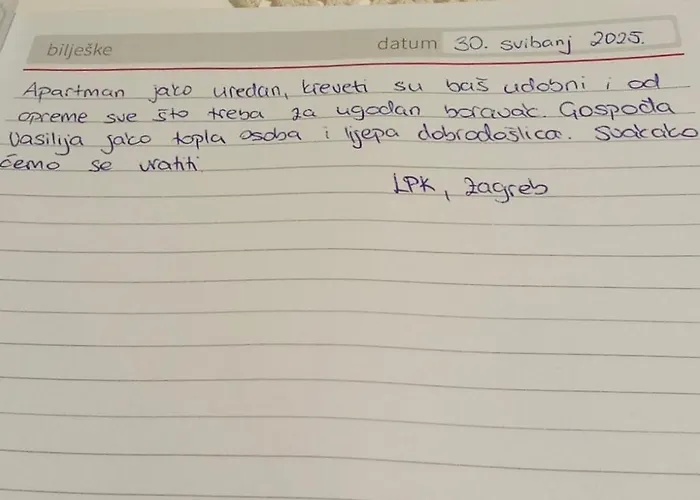 bilješke datum 30. svibanj 2025.
Apartman jako uredan, kreveti su baš udobni i od
opreme sve što treba za ugodan boravak. Gospođa
Vasilija jako topla osoba i lijepa dobrodošlica. Svakako
ćemo se vratiti
LPK, Zagreb